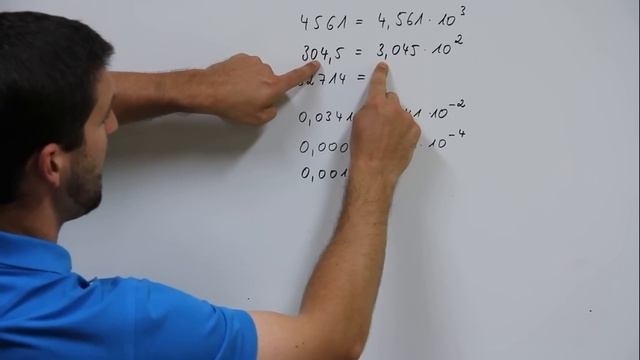 4561 = 4,561 · 10³
304,5 = 3,045 · 10²
32714 =
0,0341 41 · 10⁻²
0,000 · 10⁻⁴
0,001